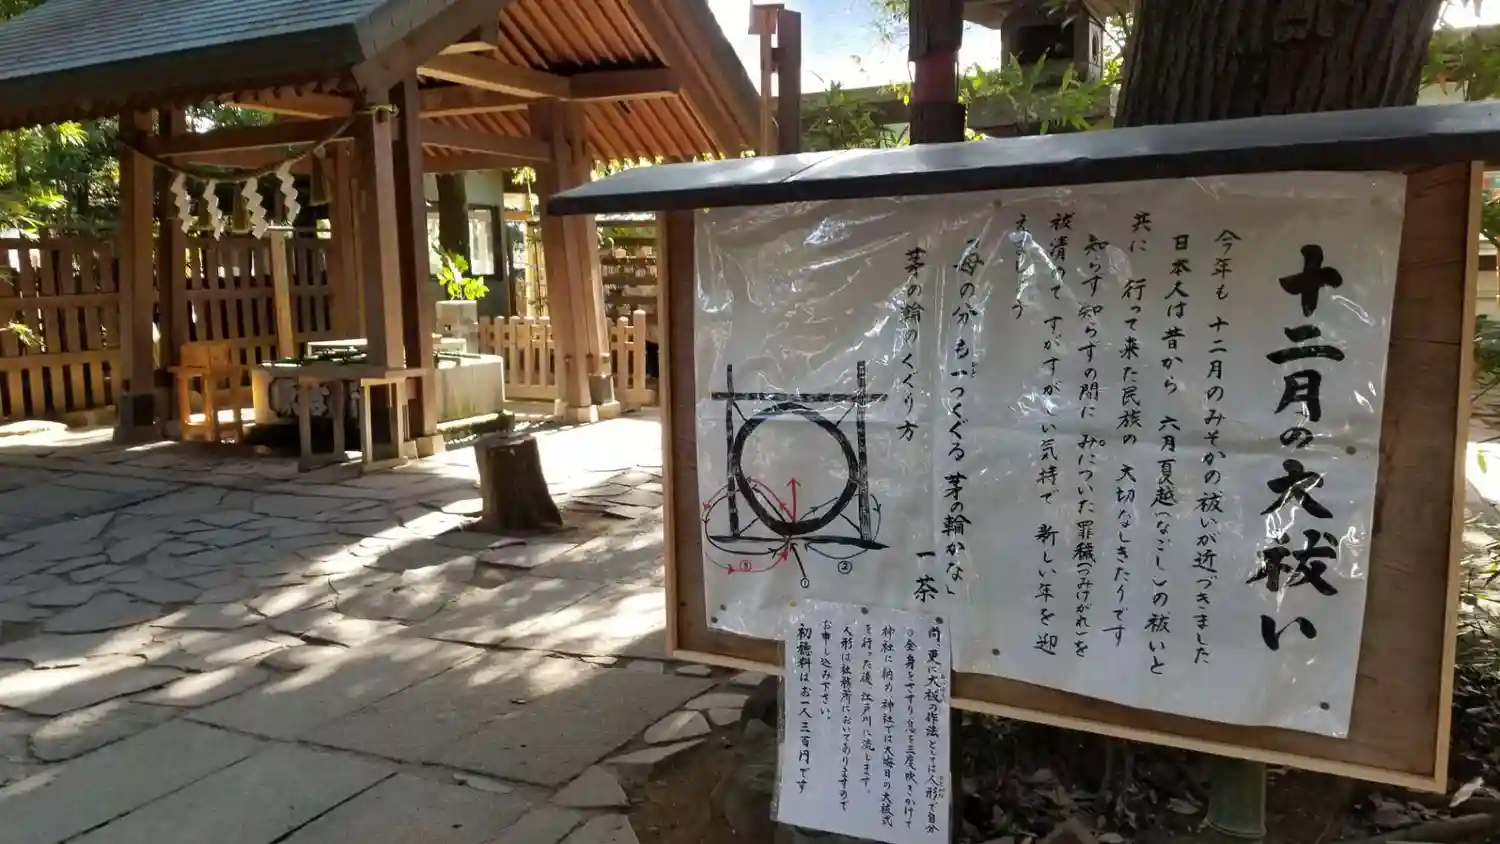 十二月の大祓い
今年も 十二月のみそかの祓いが近づきました
日本人は昔から 六月夏越(なごし)の祓いと
共に 行って来た民族の 大切なしきたりです
知らず知らずの間に みについた罪穢(つみけがれ)を
祓清めて すがすがしい気持で 新しい年を迎
えましょう
「母の分も一つくぐる 茅の輪かな」
一茶
茅の輪のくぐり方
①
②
③
尚、更に大祓の作法としては人形で自分
の全身をさすり息を三度吹きかけて
神社に納め 神社では大晦日の大祓式
を行った後、江戸川に流します。
人形は社務所においてありますので
お申し込み下さい。
初穂料はお一人三百円です